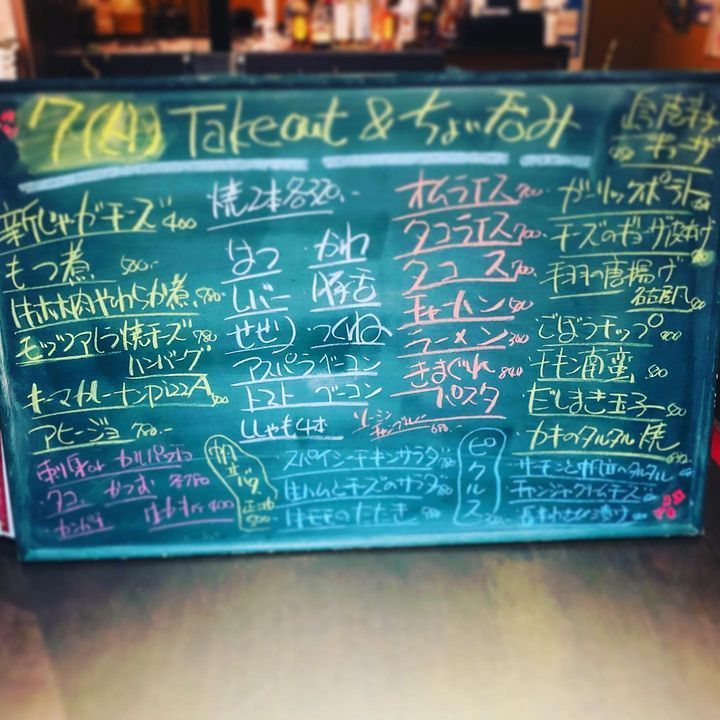 7(火) Takeout & ちょい呑み
ギョーザ
新じゃがチーズ 400
もつ煮 500.-
ほホ肉やわらか煮 780
モッツアレラ焼チーズ 780
ハンバーグ
キーマカレーナンPizzA
アヒージョ 780.-
刺身or カルパッチョ
タコ かつお 各780
カンパチ 400
焼2本各320.-
はつ かわ
レバー 豚舌
せせり つくね
アスパラベーコン
トマト ベーコン
ししゃも4本
帆立バタ
500
オムライス 700
タコライス 700
タコス 700
チャーハン 500
ラーメン 300
きまぐれ 840
パスタ
ソーミンチャンプルー 680.-
スパイシーチキンサラダ
生ハムとチーズのサラダ
ピクルス
ガーリックポテト
チーズのギョーザ皮あげ
手羽の唐揚げ
ごぼうチップ 400
チキン南蛮
だしまき玉子
カキのタルタル焼
サーモンと帆立のタルタル
チャンジャクリームチーズ